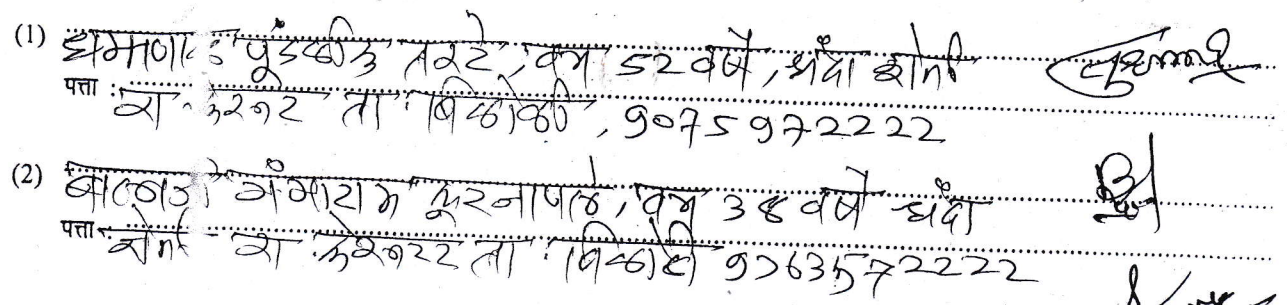 (1) पुंडलीक तरटे, वय 52 वर्षे, धंदा शेती
पत्ता : रा. ता. बिलोली, 9075972222
(2) गंगाराम कुरनापले, वय 38 वर्षे धंदा
पत्ता शेती रा. ता. बिलोली 9763572222